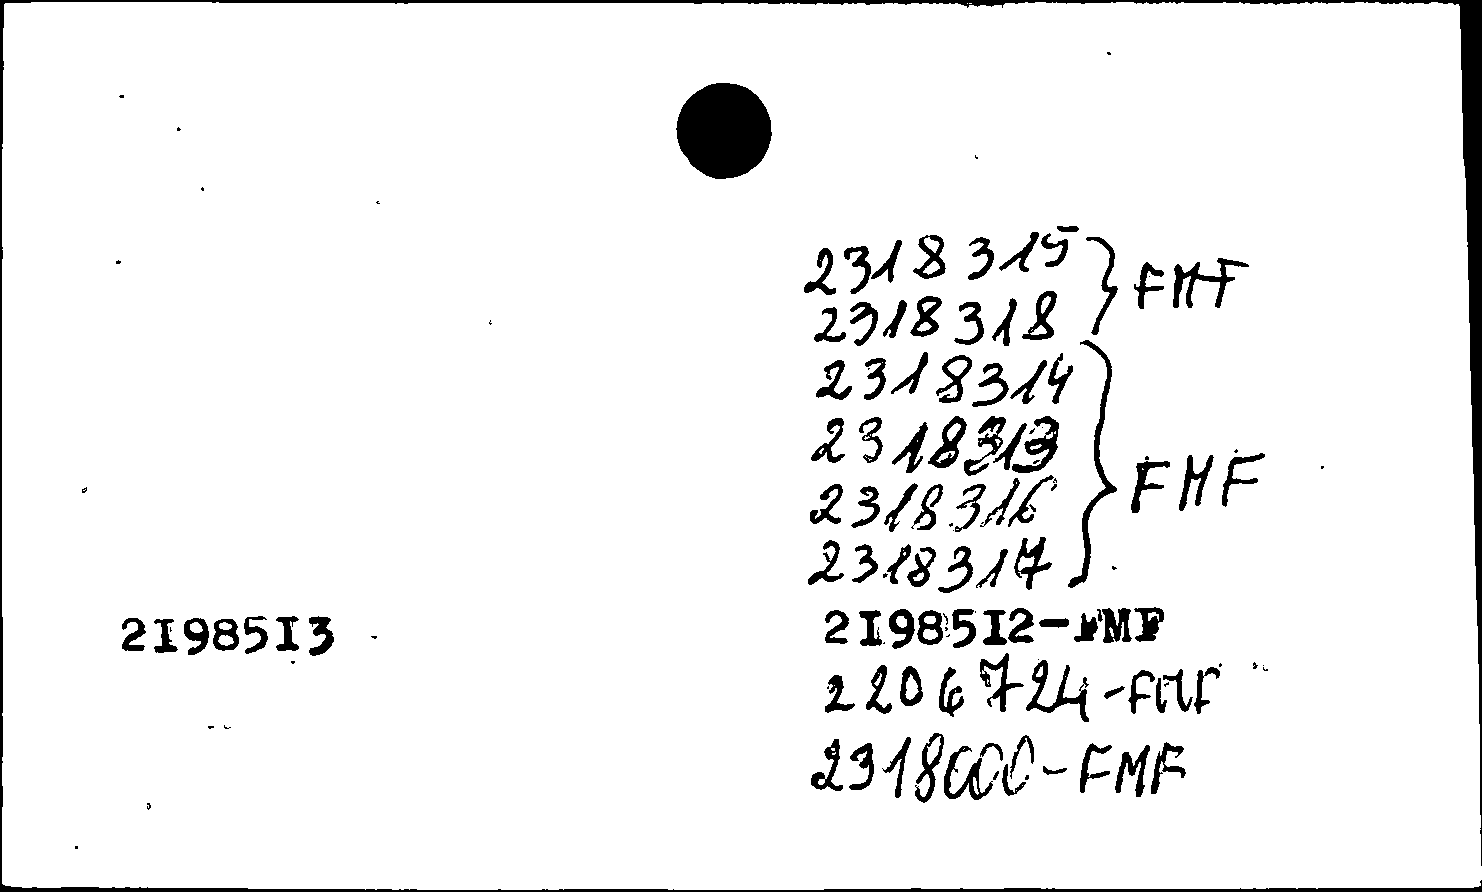 2318315 } FMF
2318318
2318314
2318313
2318316 } FMF
2318317
2I985I3
2I985I2-FMF
2206724-FMF
2318000-FMF